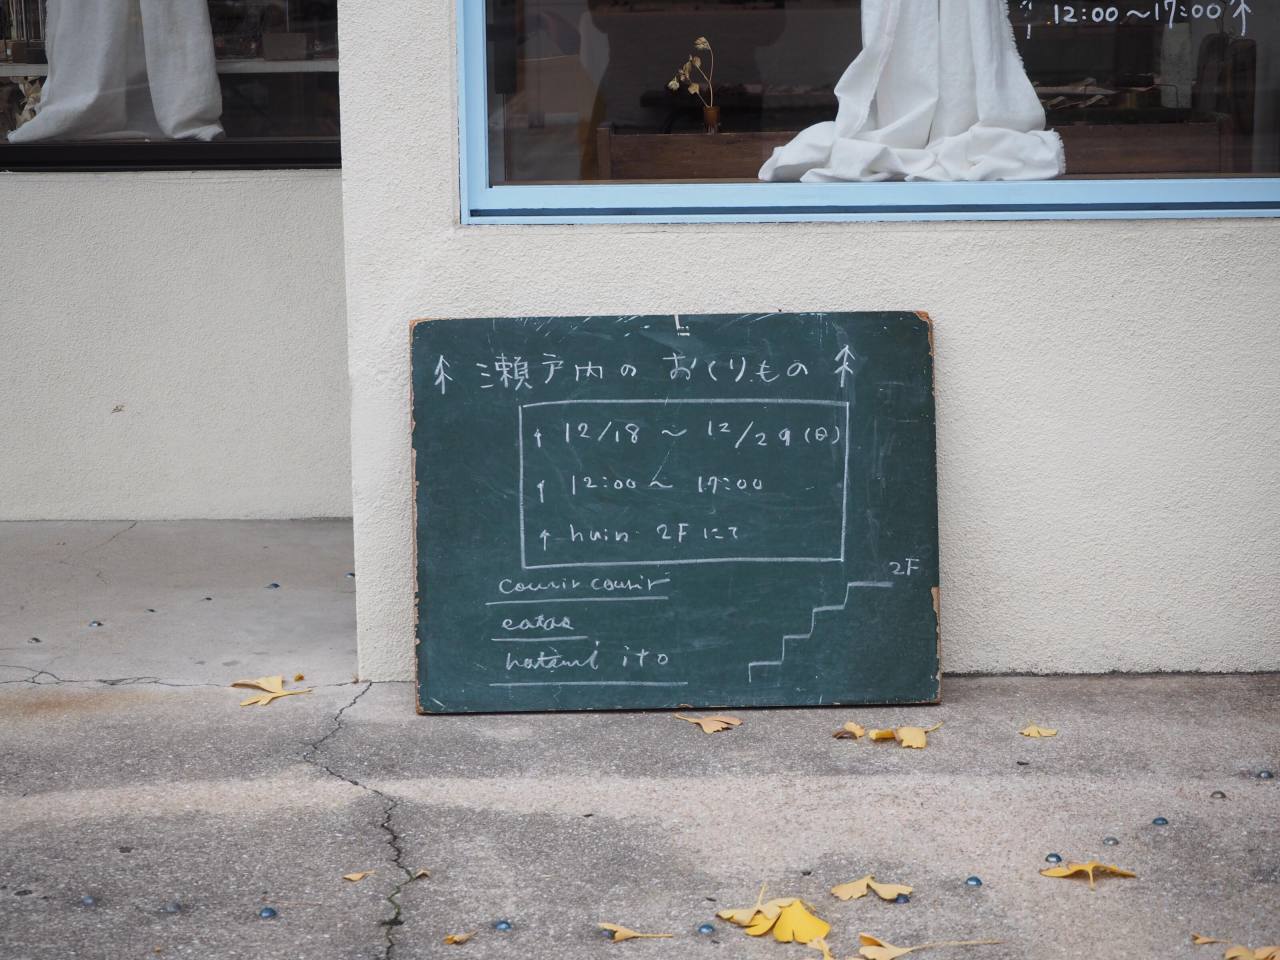 12:00～17:00
瀬戸内のおくりもの
12/18 ～ 12/29(日)
12:00～ 17:00
huin 2Fにて
2F
courir courir
eatas
hatami ito